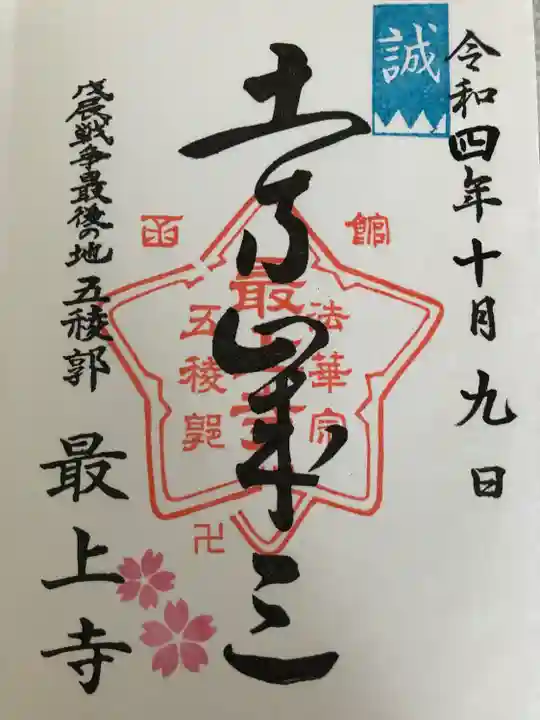 誠
令和四年十月九日
土方歳三
函館
最上寺
法華宗
五稜郭
卍
戊辰戦争最後の地 五稜郭
最上寺